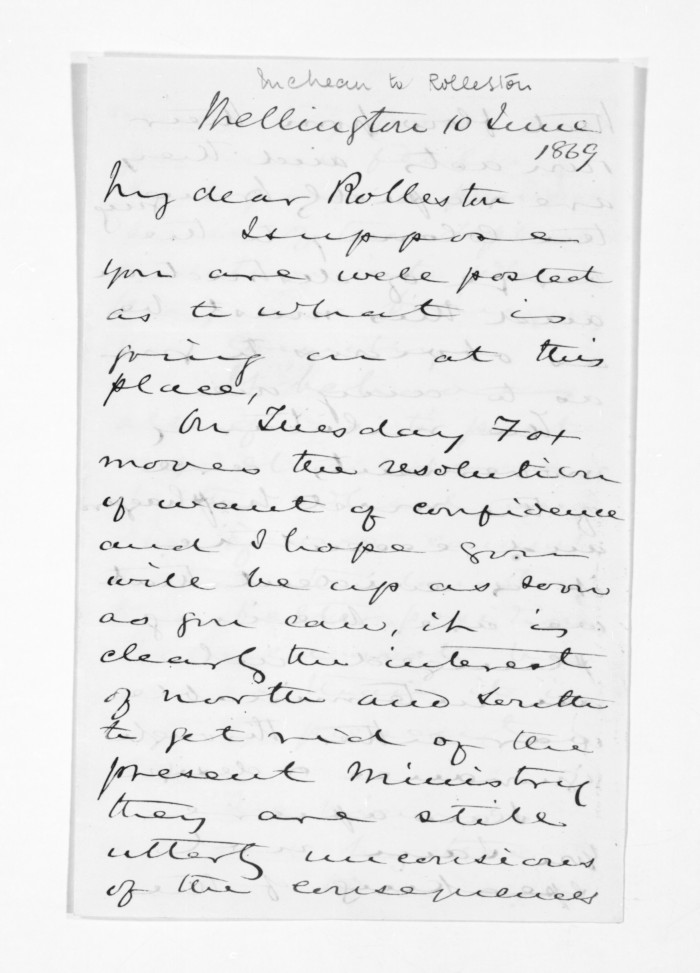 McLean to Rolleston
Wellington 10 June
1869
My dear Rolleston
I suppose
you are well posted
as to what is
going on at this
place,
On Tuesday Fox
moves the resolution
of want of confidence
and I hope you
will be up as soon
as you can, it is
clearly the interest
of north and South
to get rid of the
present Ministry
they are still
utterly unconsious
of the consequences